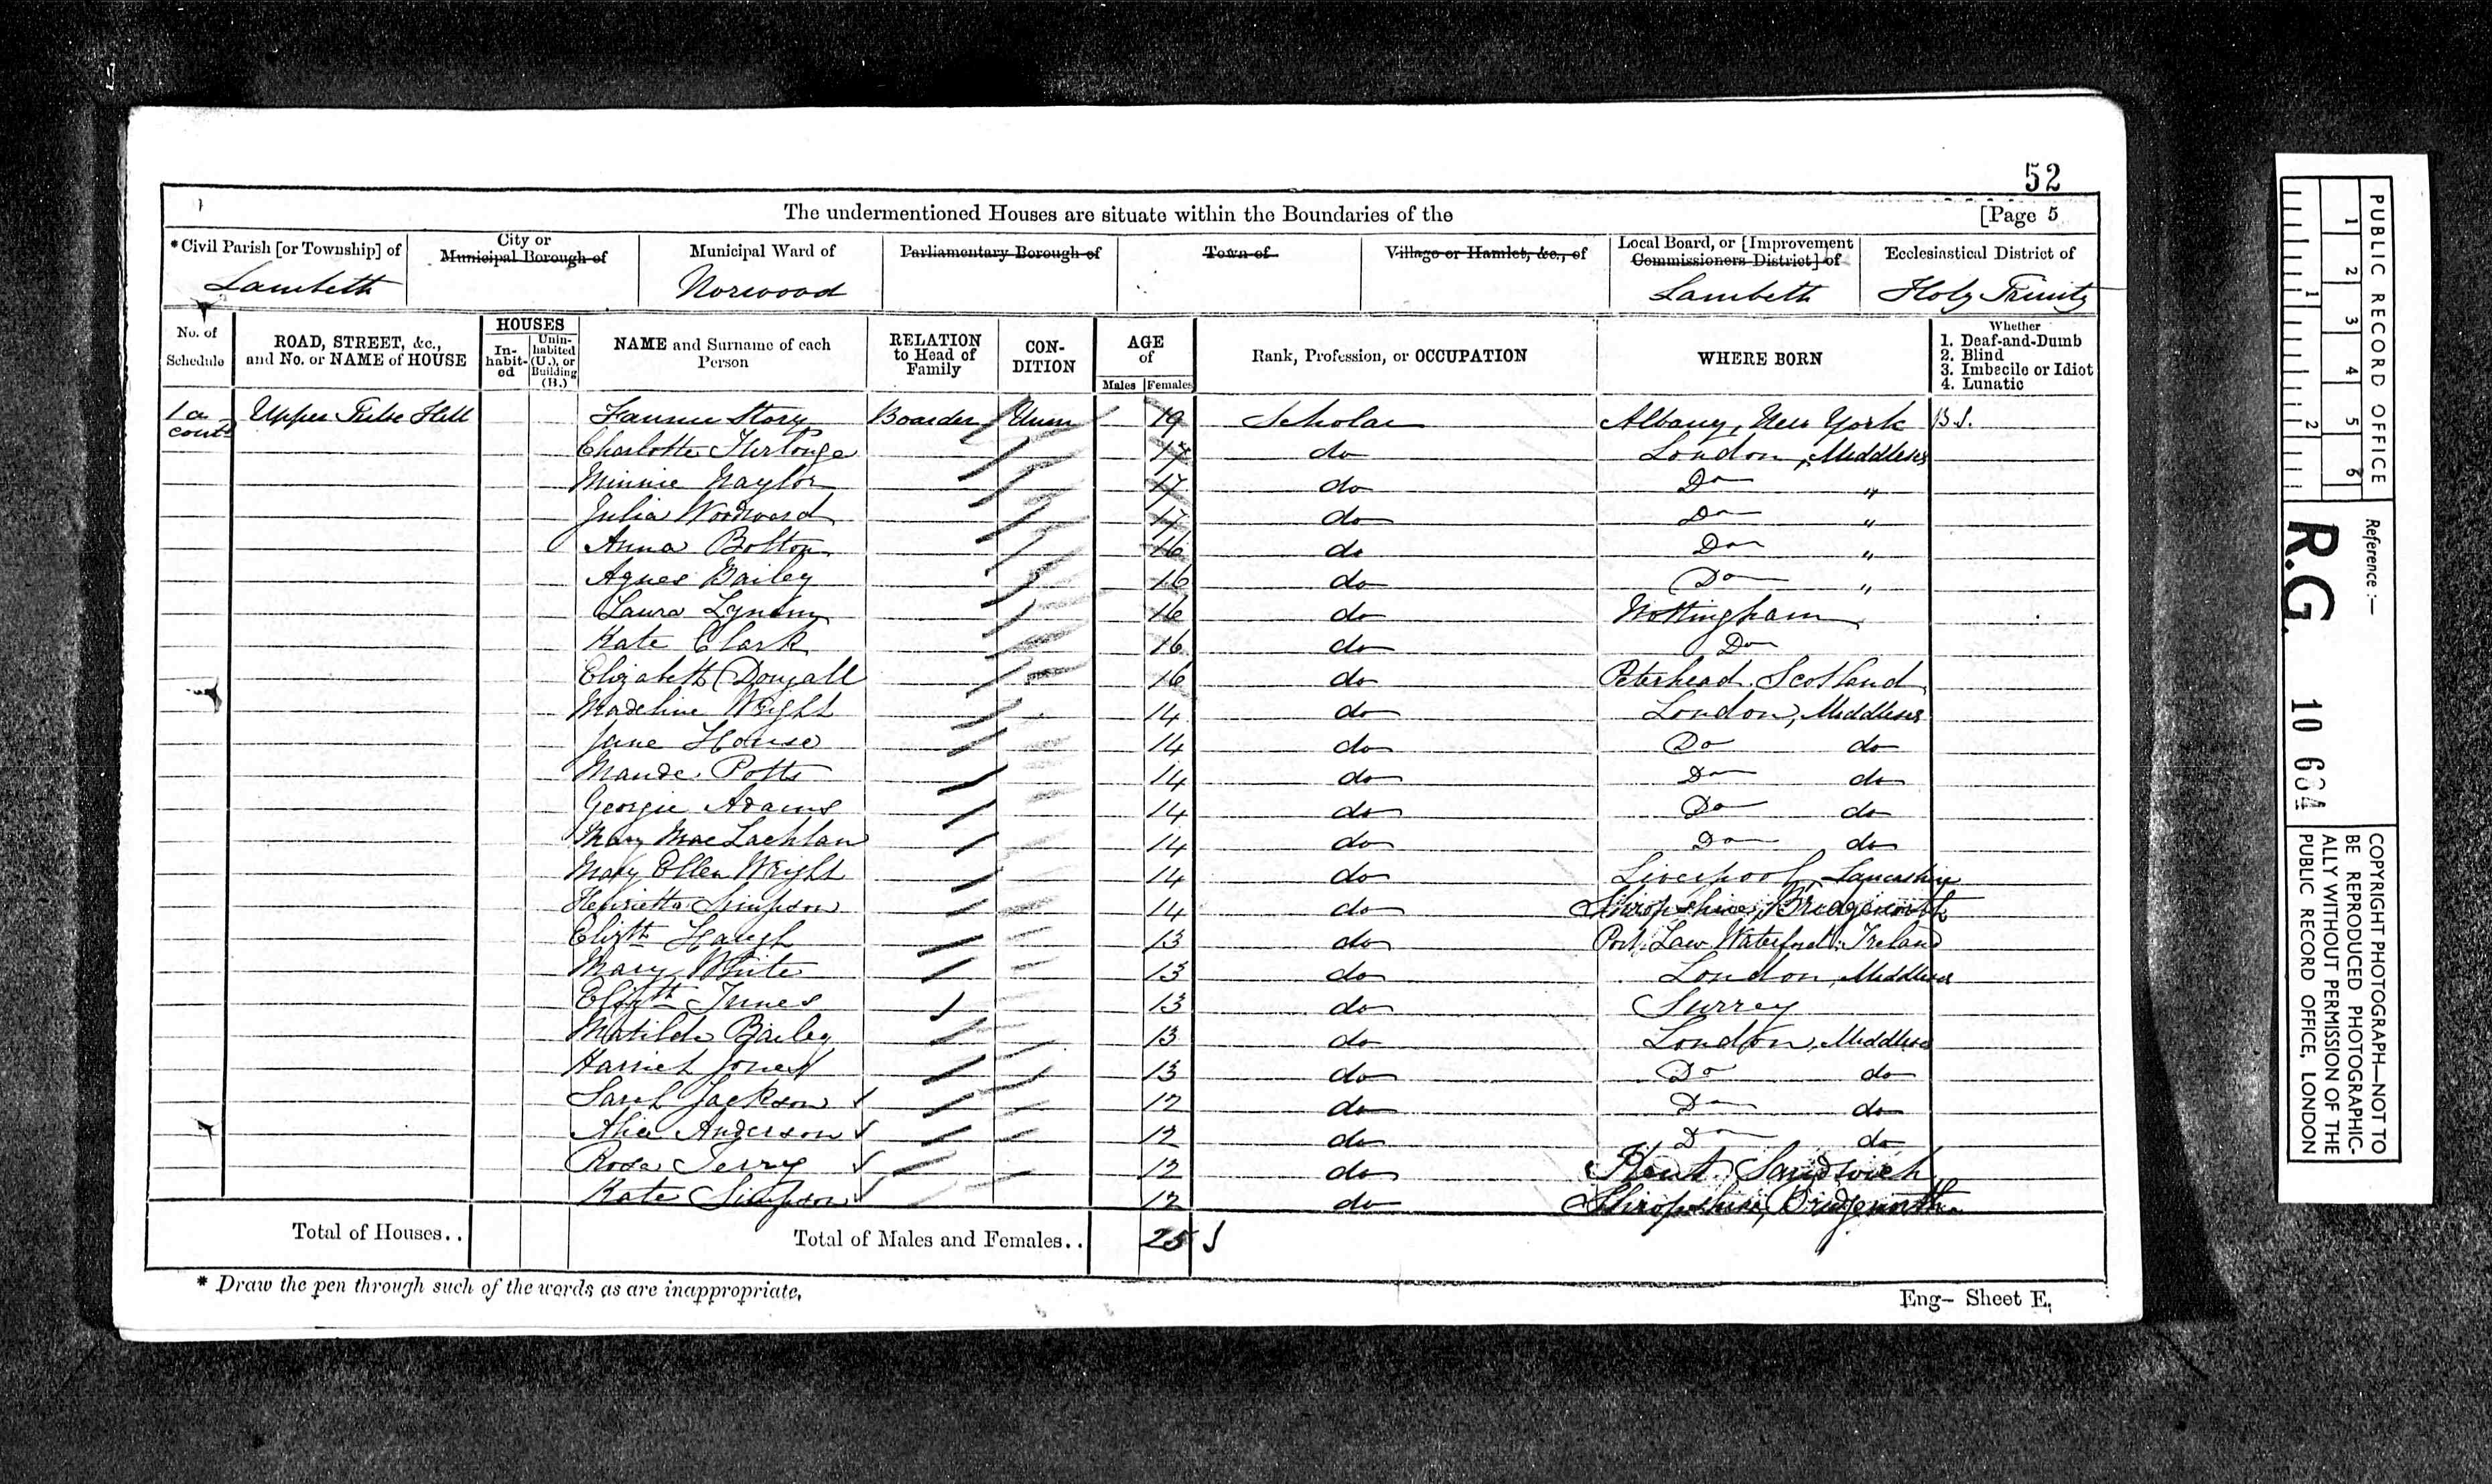 52
The undermentioned Houses are situate within the Boundaries of the [Page 5
*Civil Parish [or Township] of City or Municipal Borough of Municipal Ward of Parliamentary Borough of Town of Village or Hamlet, &c., of Local Board, or [Improvement Commissioners District] of Ecclesiastical District of
Lambeth Norwood Lambeth Holy Trinity
No. of Schedule ROAD, STREET, &c., and No. or NAME of HOUSE HOUSES Inhabited Uninhabited (U.), or Building (B.) NAME and Surname of each Person RELATION to Head of Family CONDITION AGE of Males Females Rank, Profession, or OCCUPATION WHERE BORN Whether 1. Deaf-and-Dumb 2. Blind 3. Imbecile or Idiot 4. Lunatic
1a cont Upper Tulse Hill Fannie Story Boarder Unm 19 Scholar Albany, New York B.S.
Charlotte 17 do London, Middlesex
Minnie Naylor 17 do Do "
Julia Woodward 17 do Do "
Anna Bolton 16 do Do "
Agnes Bailey 16 do Do "
Laura Lynam 16 do Nottingham
Kate Clark 16 do Do
Elizabeth Dougall 16 do Peterhead Scotland
Madeline Wright 14 do London, Middlesex
Jane House 14 do Do do
Maude Potts 14 do Do do
Georgie Adams 14 do Do do
Mary MacLachlan 14 do Do do
Mary Ellen Wright 14 do Liverpool, Lancashire
Henrietta Simpson 14 do Shropshire, Bridgenorth
Elizth Haugh 13 do Port Law Waterford Ireland
Mary White 13 do London, Middlesex
Elizth 13 do Surrey
Matilda Bailey 13 do London, Middlesex
Harriet Jones 13 do Do do
Sarah Jackson 12 do Do do
Alice Anderson 12 do Do do
Rosa Terry 12 do Kent Sandwich
Kate Simpson 12 do Shropshire, Bridgenorth
Total of Houses.. Total of Males and Females.. 25
* Draw the pen through such of the words as are inappropriate.
Eng- Sheet E.
PUBLIC RECORD OFFICE
1 2 3 4 5 6
1 2
Reference:-
R.G. 10 684
COPYRIGHT PHOTOGRAPH—NOT TO
BE REPRODUCED PHOTOGRAPHIC-
ALLY WITHOUT PERMISSION OF THE
PUBLIC RECORD OFFICE, LONDON